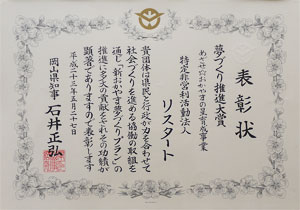 表彰状
夢づくり推進大賞
あさせおかやまの里育成事業
特定非営利活動法人
リスタート
貴団体は県民と行政が力を合わせて
社会づくりを進める協働の取組を
通じ「新おかやま夢づくりプラン」の
推進に多大の貢献をされその功績が
顕著でありますので表彰します
平成二十三年五月二十七日
岡山県知事 石井正弘